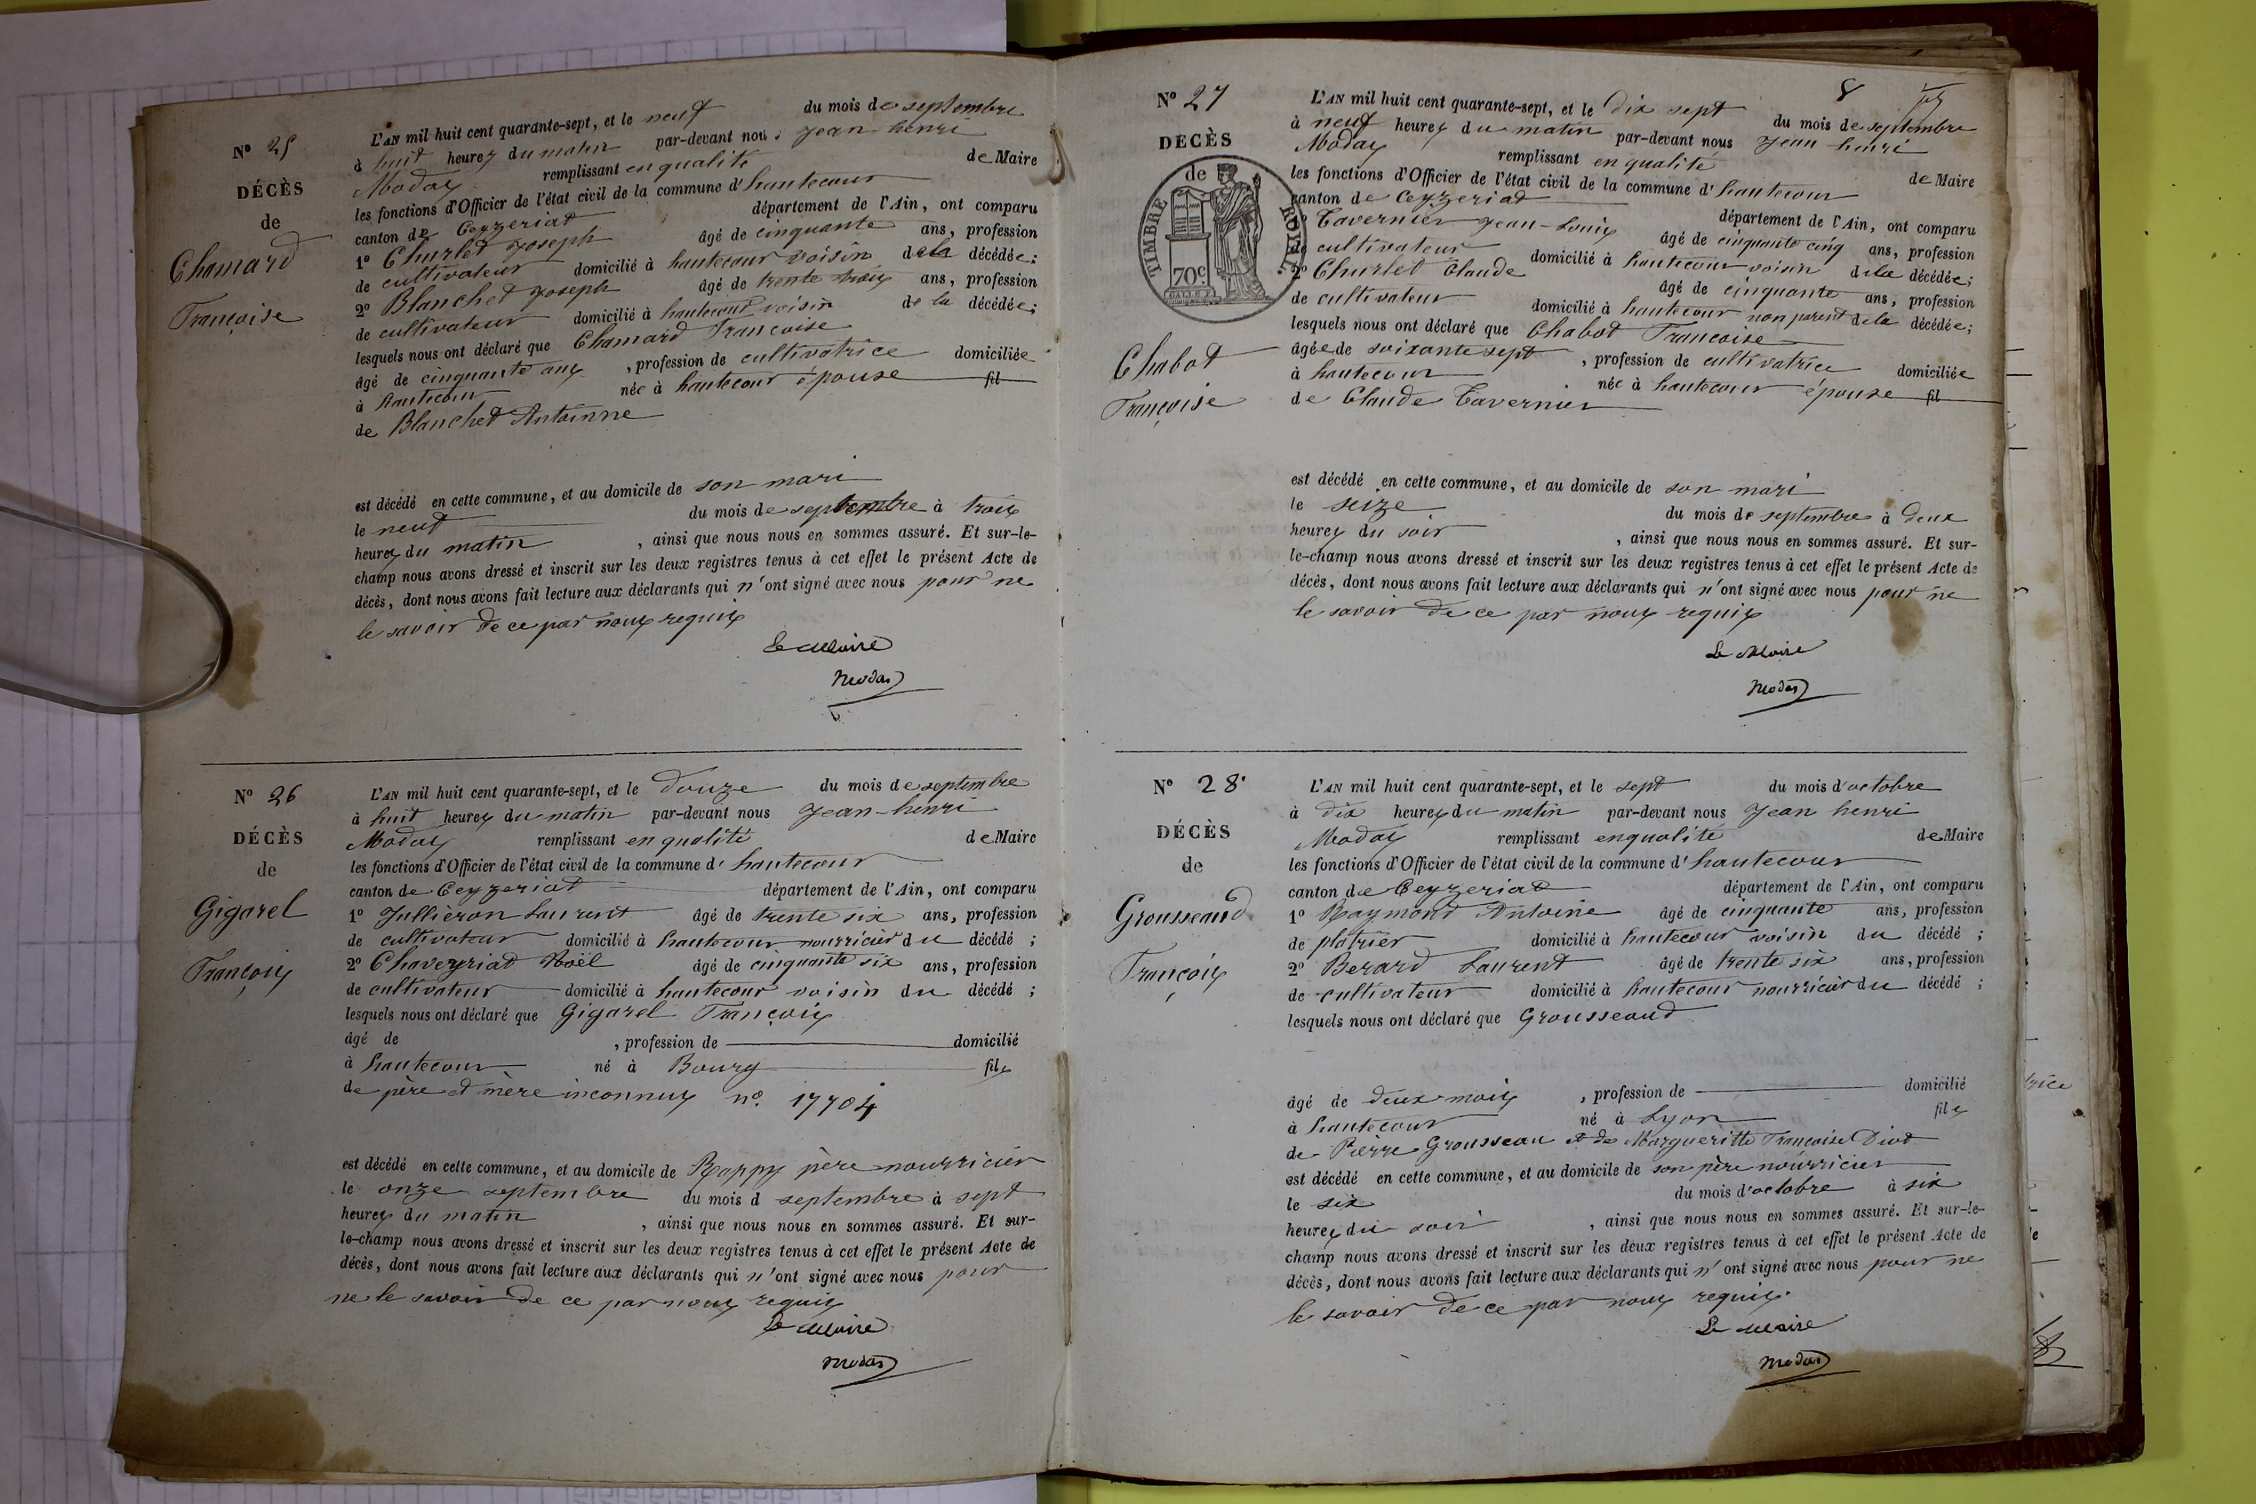 N° 25
DÉCÈS
de
Chamard
Françoise
L'AN mil huit cent quarante-sept, et le neuf du mois de septembre
à huit heures du matin par-devant nous jean henri
Moday remplissant en qualité de Maire
les fonctions d'Officier de l'état civil de la commune d'hautecour
canton de Ceyzeriat département de l'Ain, ont comparu
1° Churlet joseph âgé de cinquante ans, profession
de cultivateur domicilié à hautecour voisin de la décédée;
2° Blanchet joseph âgé de trente trois ans, profession
de cultivateur domicilié à hautecour voisin de la décédée;
lesquels nous ont déclaré que Chamard Françoise
âgé de cinquante ans , profession de cultivatrice domiciliée
à hautecour née à hautecour épouse fil
de Blanchet Antoinne
est décédé en cette commune, et au domicile de son mari
le neuf du mois de septembre à trois
heures du matin , ainsi que nous nous en sommes assuré. Et sur-le-
champ nous avons dressé et inscrit sur les deux registres tenus à cet effet le présent Acte de
décès, dont nous avons fait lecture aux déclarants qui n'ont signé avec nous pour ne
le savoir de ce par nous requis
Le Maire
Moday
N° 26
DÉCÈS
de
Gigarel
François
L'AN mil huit cent quarante-sept, et le douze du mois de septembre
à huit heures du matin par-devant nous jean-henri
Moday remplissant en qualité de Maire
les fonctions d'Officier de l'état civil de la commune d'hautecour
canton de Ceyzeriat département de l'Ain, ont comparu
1° Jullieron Laurent âgé de trente six ans, profession
de cultivateur domicilié à hautecour nourricier du décédé ;
2° Chaveyriat Noël âgé de cinquante six ans, profession
de cultivateur domicilié à hautecour voisin du décédé ;
lesquels nous ont déclaré que Gigarel François
âgé de , profession de domicilié
à hautecour né à Bourg fils
de père et mère inconnus n°. 17704
est décédé en cette commune, et au domicile de Rappy père nourricier
le onze septembre du mois d septembre à sept
heures du matin , ainsi que nous nous en sommes assuré. Et sur-
le-champ nous avons dressé et inscrit sur les deux registres tenus à cet effet le présent Acte de
décès, dont nous avons fait lecture aux déclarants qui n'ont signé avec nous pour
ne le savoir de ce par nous requis
Le Maire
Moday
8
N° 27
DÉCÈS
de
TIMBRE ROYAL
70c
Chabot
Françoise
L'AN mil huit cent quarante-sept, et le dix sept du mois de septembre
à neuf heures du matin par-devant nous jean-henri
Moday remplissant en qualité de Maire
les fonctions d'Officier de l'état civil de la commune d'hautecour
canton de Ceyzeriat département de l'Ain, ont comparu
1° Tavernier jean-Louis âgé de cinquante cinq ans, profession
de cultivateur domicilié à hautecour voisin de la décédée;
2° Churlet Claude âgé de cinquante ans, profession
de cultivateur domicilié à hautecour non parent de la décédée;
lesquels nous ont déclaré que Chabot Françoise
âgée de soixante sept , profession de cultivatrice domiciliée
à hautecour née à hautecour épouse fil
de Claude Tavernier
est décédé en cette commune, et au domicile de son mari
le seize du mois de septembre à deux
heures du soir , ainsi que nous nous en sommes assuré. Et sur-
le-champ nous avons dressé et inscrit sur les deux registres tenus à cet effet le présent Acte de
décès, dont nous avons fait lecture aux déclarants qui n'ont signé avec nous pour ne
le savoir de ce par nous requis
Le Maire
Moday
N° 28
DÉCÈS
de
Grousseaud
François
L'AN mil huit cent quarante-sept, et le sept du mois d'octobre
à dix heures du matin par-devant nous jean henri
Moday remplissant en qualité de Maire
les fonctions d'Officier de l'état civil de la commune d'hautecour
canton de Ceyzeriat département de l'Ain, ont comparu
1° Raymond Antoine âgé de cinquante ans, profession
de platrier domicilié à hautecour voisin du décédé ;
2° Berard Laurent âgé de trente six ans, profession
de cultivateur domicilié à hautecour nourricier du décédé ;
lesquels nous ont déclaré que Grousseaud
âgé de deux mois , profession de domicilié
à hautecour né à Lyon fils
de Pierre Grousseau et de Margueritte Françoise Diot
est décédé en cette commune, et au domicile de son père nourricier
le six du mois d'octobre à six
heures du soir , ainsi que nous nous en sommes assuré. Et sur-le-
champ nous avons dressé et inscrit sur les deux registres tenus à cet effet le présent Acte de
décès, dont nous avons fait lecture aux déclarants qui n'ont signé avec nous pour ne
le savoir de ce par nous requis.
Le Maire
Moday